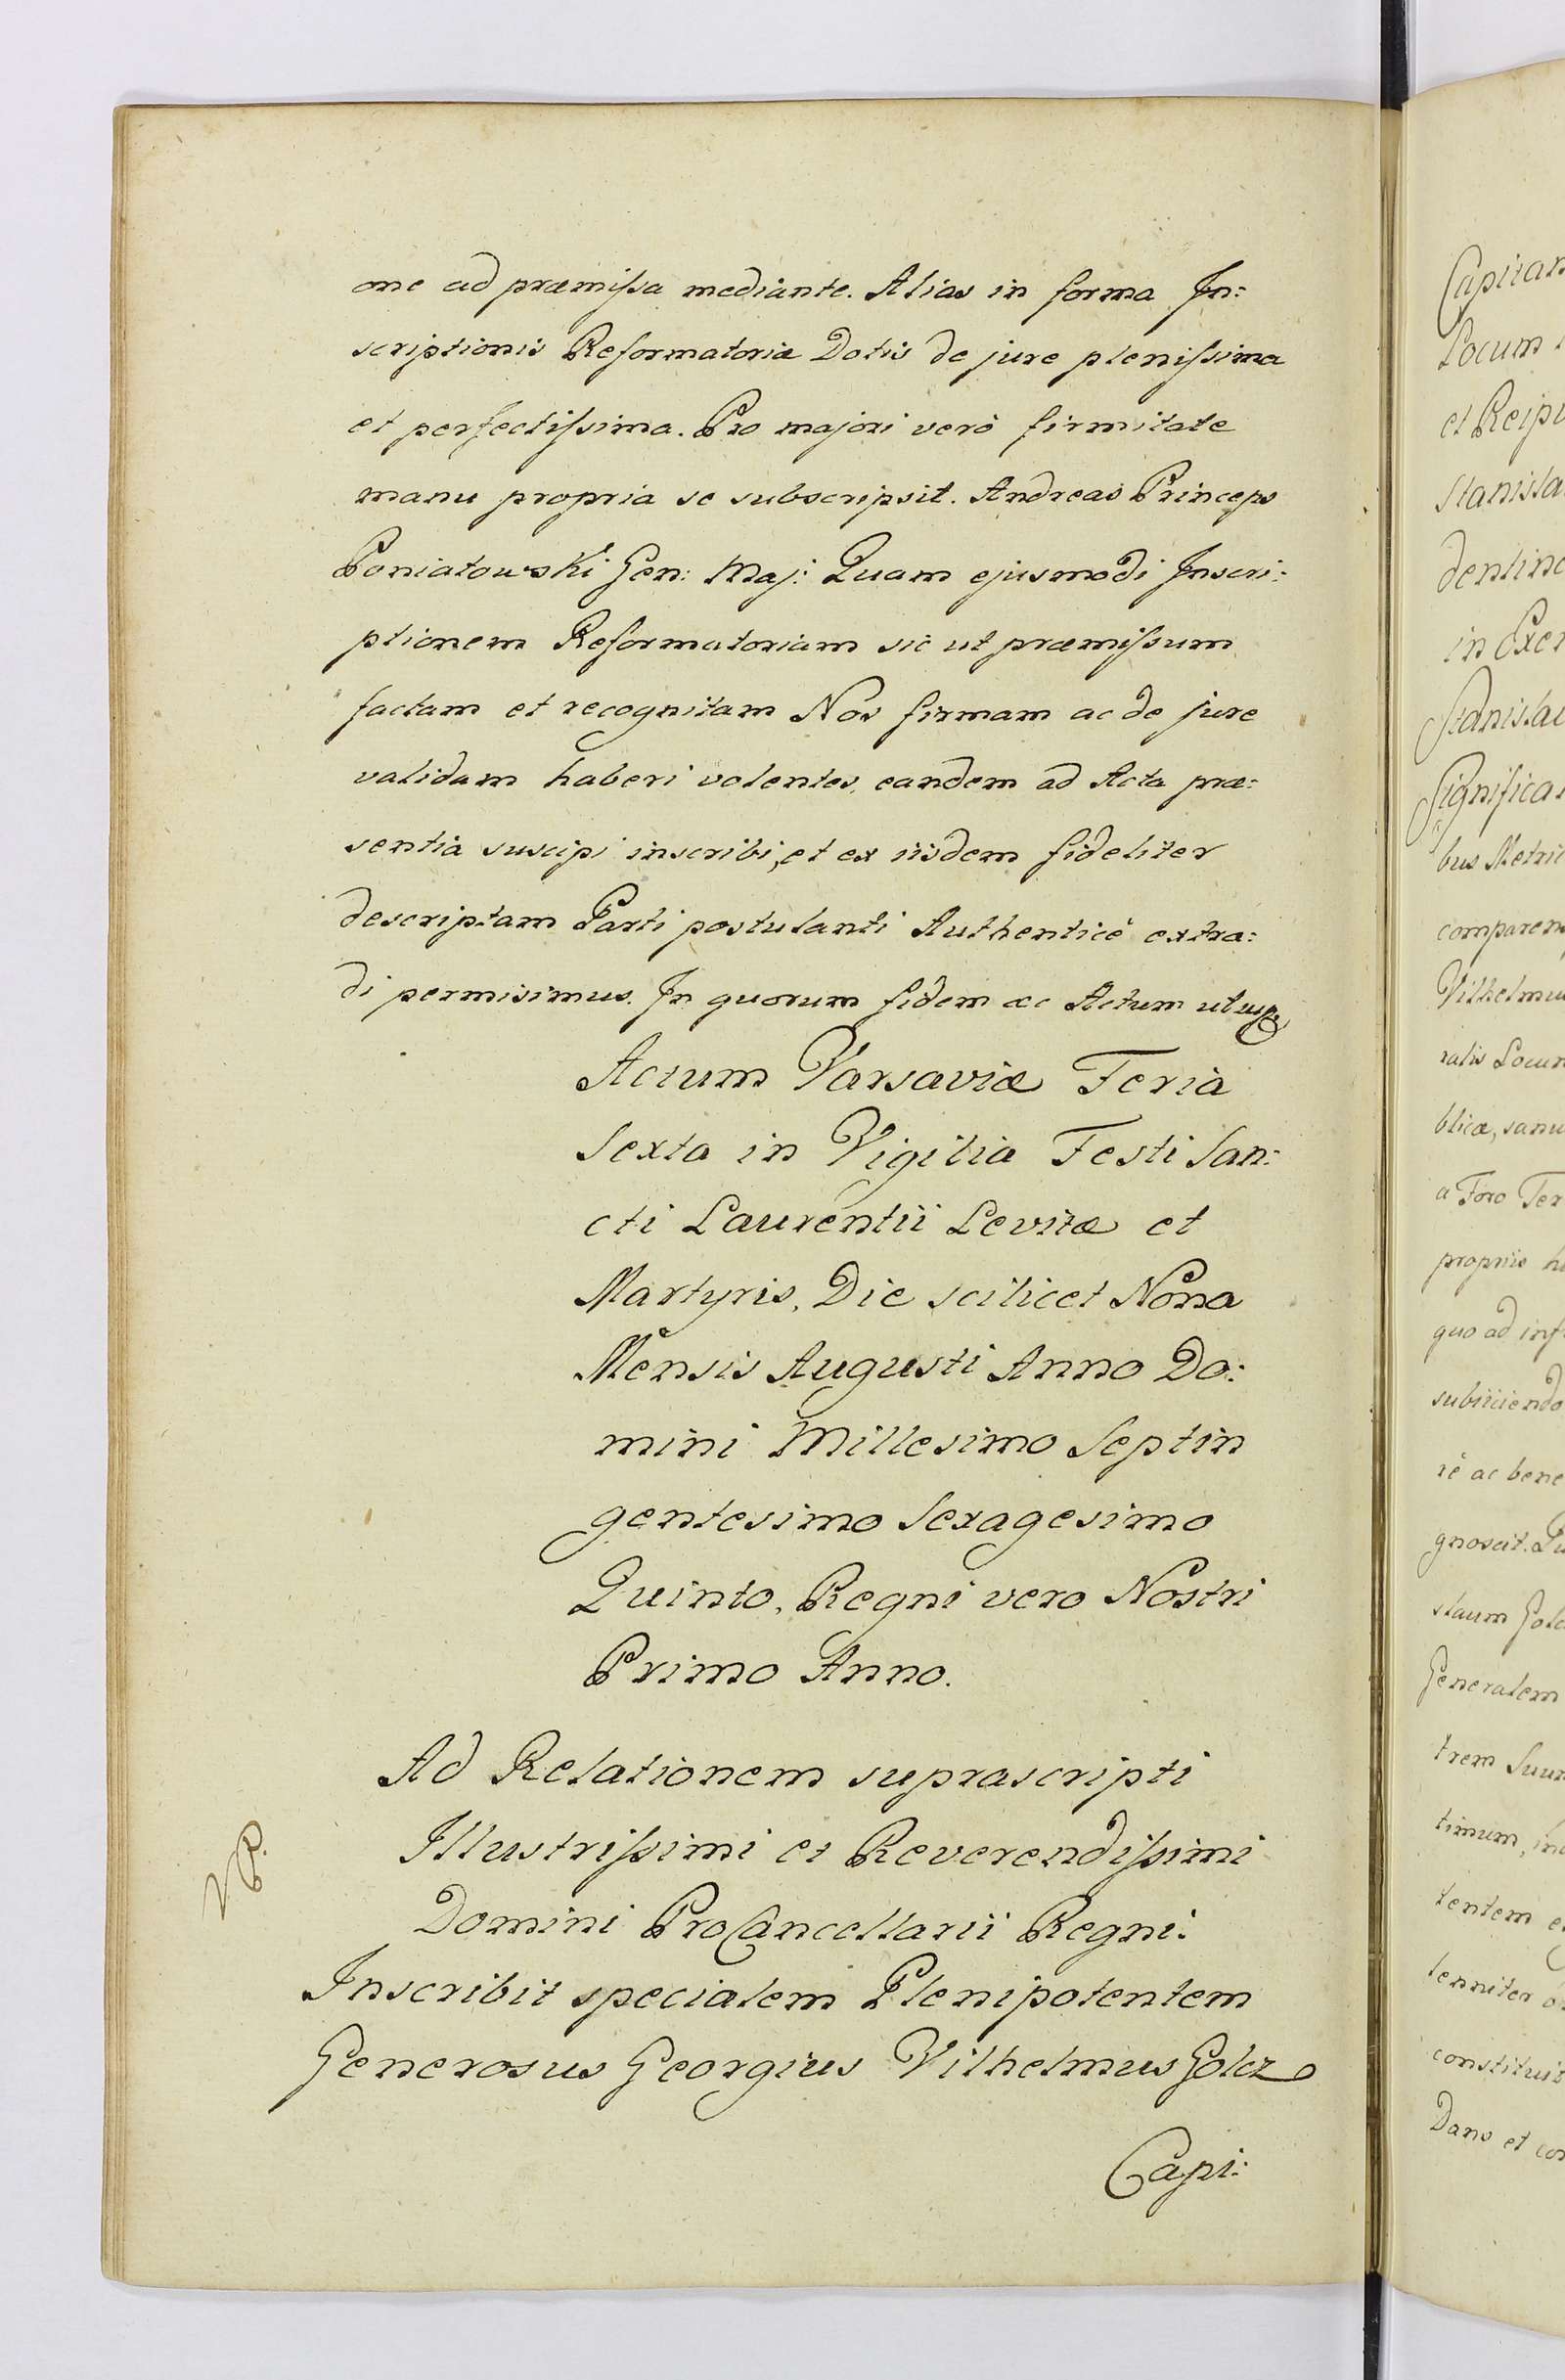 one ad præmissa mediante. Alias in forma In:
scriptionis Reformatoriæ Dotis de jure plenissima
et perfectissima. Pro majori verò firmitate
manu propria se subscripsit. Andreas Princeps
Poniatowski Gen: Maj: Quam ejusmodi Inscri:
ptionem Reformatoriam sic ut præmissum
factam et recognitam Nos firmam ac de jure
validam haberi volentes, eandem ad Acta præ:
sentia suscipi inscribi, et ex iisdem fideliter
descriptam Parti postulanti Authenticè extra:
di permisimus. In quorum fidem &c Actum ut usp:
Actum Varsaviæ Feria
Sexta in Vigilia Festi San:
cti Laurentii Levitæ et
Martyris, Die scilicet Nona
Mensis Augusti Anno Do:
mini Millesimo Septin
gentesimo Sexagesimo
Quinto, Regni vero Nostri
Primo Anno.
Ad Relationem suprascripti
Illustrissimi et Reverendissimi
Domini ProCancellarii Regni.
Inscribit specialem Plenipotentem
Generosus Georgius Vilhelmus Golcz
Capi:
Capitan
Locum
et Reipu
Stanisla
dentino
in Exer
Stanislau
Significa
bus Metric
comparen
Vilhelmu
ralis Locum
blicæ, sanu
a Foro Ter
propriis h
quo ad inf
subiiciendo
rè ac bene
gnoscit. Qu
slaum Golc
Generalem
trem Suum
timum, in
tentem e
lenniter o
constituit
Dans et con